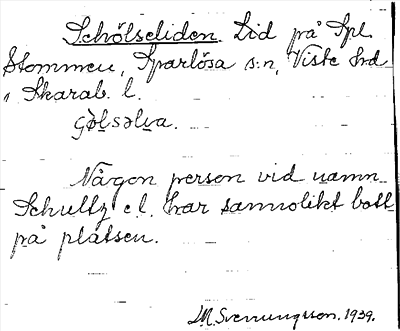 Schölseliden. Lid på Spl.
Stommen, Sparlösa s:n, Viste hrd
, Skarab. l.
Någon person vid namn
Schultz el. har sannolikt bott
på platsen.
M. Svenungsson. 1939.